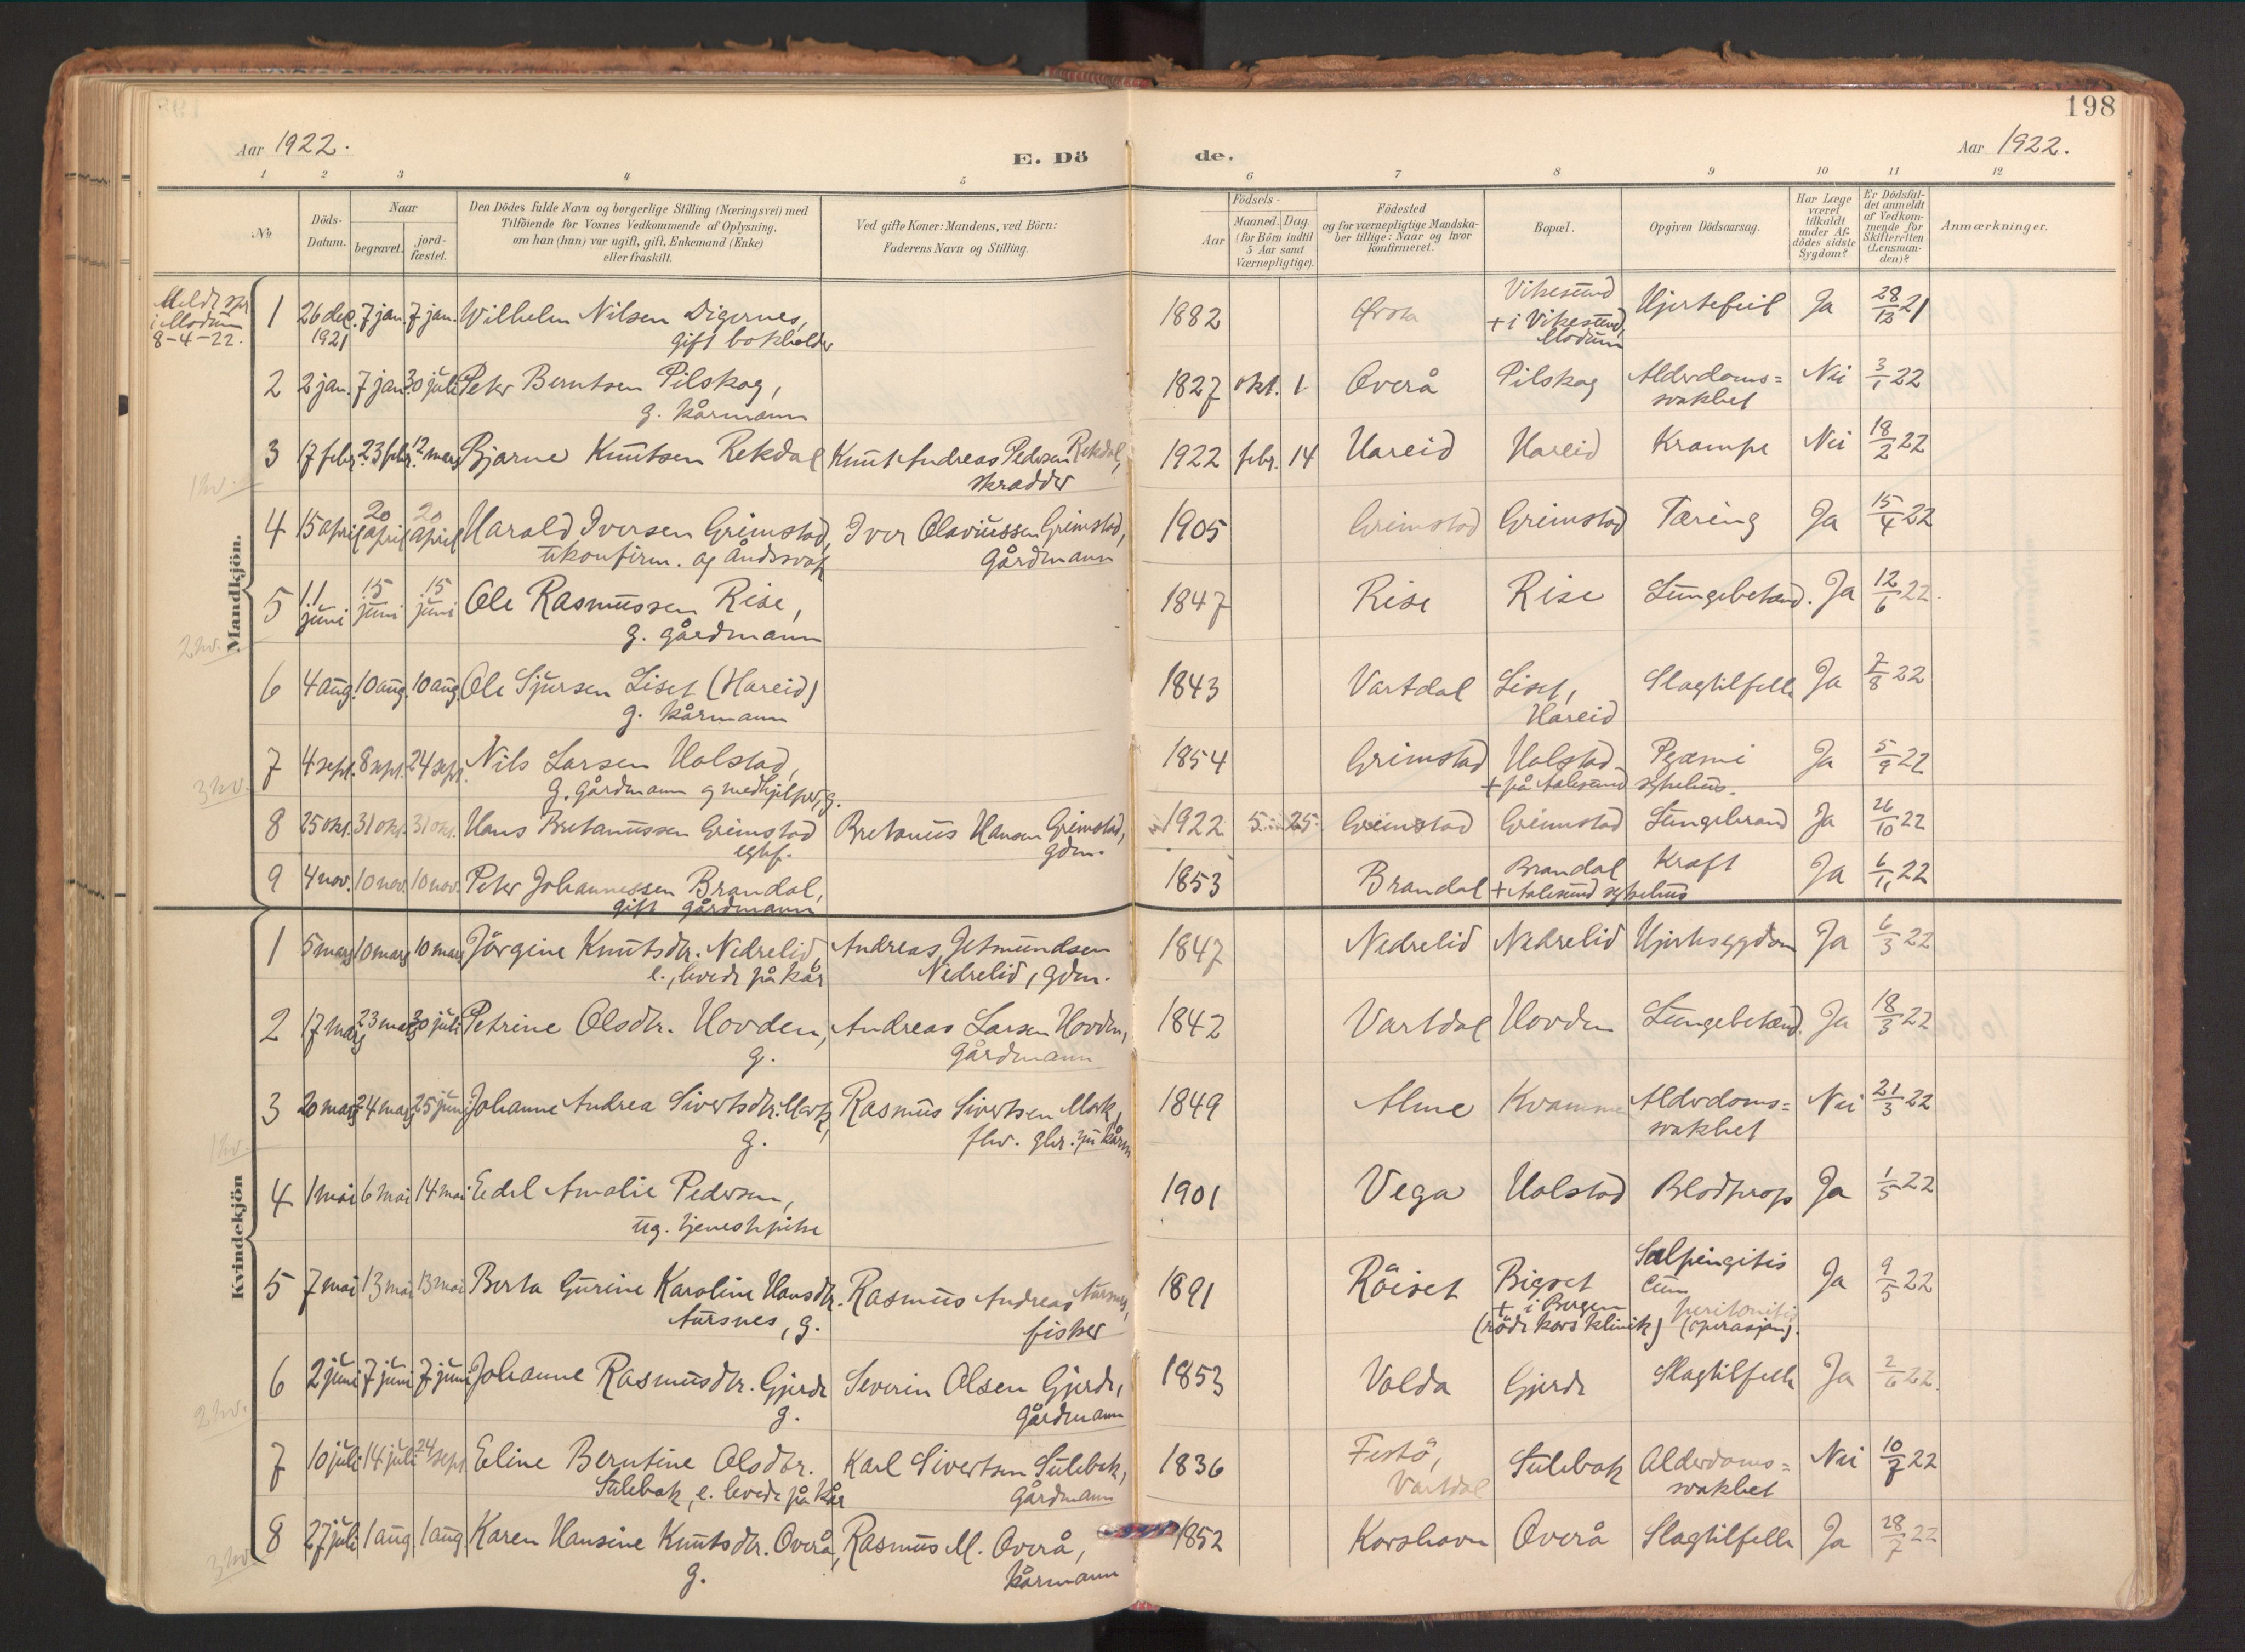 198
Aar 1922.
E. Dö de.
Aar 1922.
1 2 3 4 5 6 7 8 9 10 11 12
No
Döds-Datum.
Naar begravet. jordfæstet.
Den Dödes fulde Navn og borgerlige Stilling (Næringsvei) med
Tilföiende for Voxnes Vedkommende af Oplysning,
om han (hun) var ugift, gift, Enkemand (Enke)
eller fraskilt.
Ved gifte Koner: Mandens, ved Börn:
Faderens Navn og Stilling.
Födsels-
Aar Maaned. Dag.
(for Börn indtil
5 Aar samt
Værnepligtige).
Födested
og for værnepligtige Mandska-
ber tillige: Naar og hvor
konfirmeret.
Bopæl.
Opgiven Dödsaarsag.
Har Læge
været
tilkaldt
under Af-
dödes sidste
Sygdom?
Er Dödsfal-
det anmeldt
af Vedkom-
mende for
Skifteretten
(Lensman-
den)?
Anmærkninger.
Mandkjön.
Meldt
i Modum
8-4-22.
1 26 dec. 7 jan. 7 jan. Wilhelm Nilsen Digernes, 1882 Vikesund Hjertefeil Ja 28/12 21
1921 gift bokholder + i Vikesund, Modum
2 2 jan. 7 jan. 30 juli Peter Berntsen Pilskog, 1827 okt. 1 Overå Pilskog Alderdoms= Nei 3/1 22
g. kårmann svakhet
3 17 febr. 23 febr. 12 mars Bjarne Knutsen Rekdal Knut Andreas Pedersen Rekdal, 1922 febr. 14 Hareid Hareid Krampe Nei 18/2 22
skrædder
1 kv.
4 15 april 20 april 20 april Harald Iversen Grimstad, Iver Olaviussen Grimstad, 1905 Grimstad Grimstad Tæring Ja 15/4 22
ukonfirm. og åndssvak gårdmann
5 11 juni 15 juni 15 juni Ole Rasmussen Rise, 1847 Rise Rise Lungebetænd. Ja 12/6 22.
g. gårdmann
2 kv.
6 4 aug. 10 aug. 10 aug. Ole Sjursen Liset (Hareid) 1843 Vartdal Liset, Slagtilfelle Ja 7/8 22
g. kårmann Hareid
7 4 sept. 8 sept. 24 sept. Nils Larsen Holstad, 1854 Grimstad Holstad Pyæmi Ja 5/9 22
g. gårdmann og medhjelper, g. + på Aalesund sykehus.
3 kv.
8 25 okt. 31 okt. 31 okt. Hans Bretanussen Grimstad Bretanus Hansen Grimstad, 1922 5 25 Grimstad Grimstad Lungebrand Ja 26/10 22
gdm.
9 4 nov. 10 nov. 10 nov. Peter Johannessen Brandal, 1853 Brandal Brandal Kræft Ja 6/11 22
gift gårdmann + Aalesund sykehus
Kvindekjön
1 5 mars 10 mars 10 mars Jörgine Knutsdtr. Nedrelid, Andreas Jetmundsen 1847 Nedrelid Nedrelid Hjertesygdom Ja 6/3 22
e., levede på kår Nedrelid, gdm.
2 17 mars 23 mars 30 juli Petrine Olsdtr. Hovden, Andreas Larsen Hovden, 1842 Vartdal Hovden Lungebetænd. Ja 18/3 22
g. gårdmann
3 20 mars 24 mars 25 juni Johanne Andrea Sivertsdtr. Mork, Rasmus Sivertsen Mork, 1849 Alme Kvamme Alderdoms= Nei 21/3 22
g. svakhet
1 kv.
4 1 mai 6 mai 14 mai Edel Amalie Pedersen, 1901 Vega Holstad Blodprop Ja 1/5 22
ug. tjenestepike
5 7 mai 13 mai 13 mai Berta Gurine Karoline Hansdtr. Rasmus Andreas Aursnes, 1891 Röiset Bigset Salpingitis Ja 9/5 22
Aursnes, g. fisker + i Bergen cum peritonitis
(röde kors klinik) (operasjon).
6 2 juni 7 juni 7 juni Johanne Rasmusdtr. Gjerde Severin Olsen Gjerde, 1853 Volda Gjerde Slagtilfelle Ja 2/6 22.
g. gårdmann
2 kv.
7 10 juli 14 juli 24 sept. Eline Berntine Olsdtr. Karl Sivertsen Sulebak, 1836 Festö, Sulebak Alderdoms= Nei 10/7 22
Sulebak, e. levede på kår gårdmann Vartdal svakhet
8 27 juli 1 aug. 1 aug. Karen Hansine Knutsdtr. Overå, Rasmus M. Overå, 1852 Korshavn Overå Slagtilfelle Ja 28/7 22
g. kårmann
3 kv.